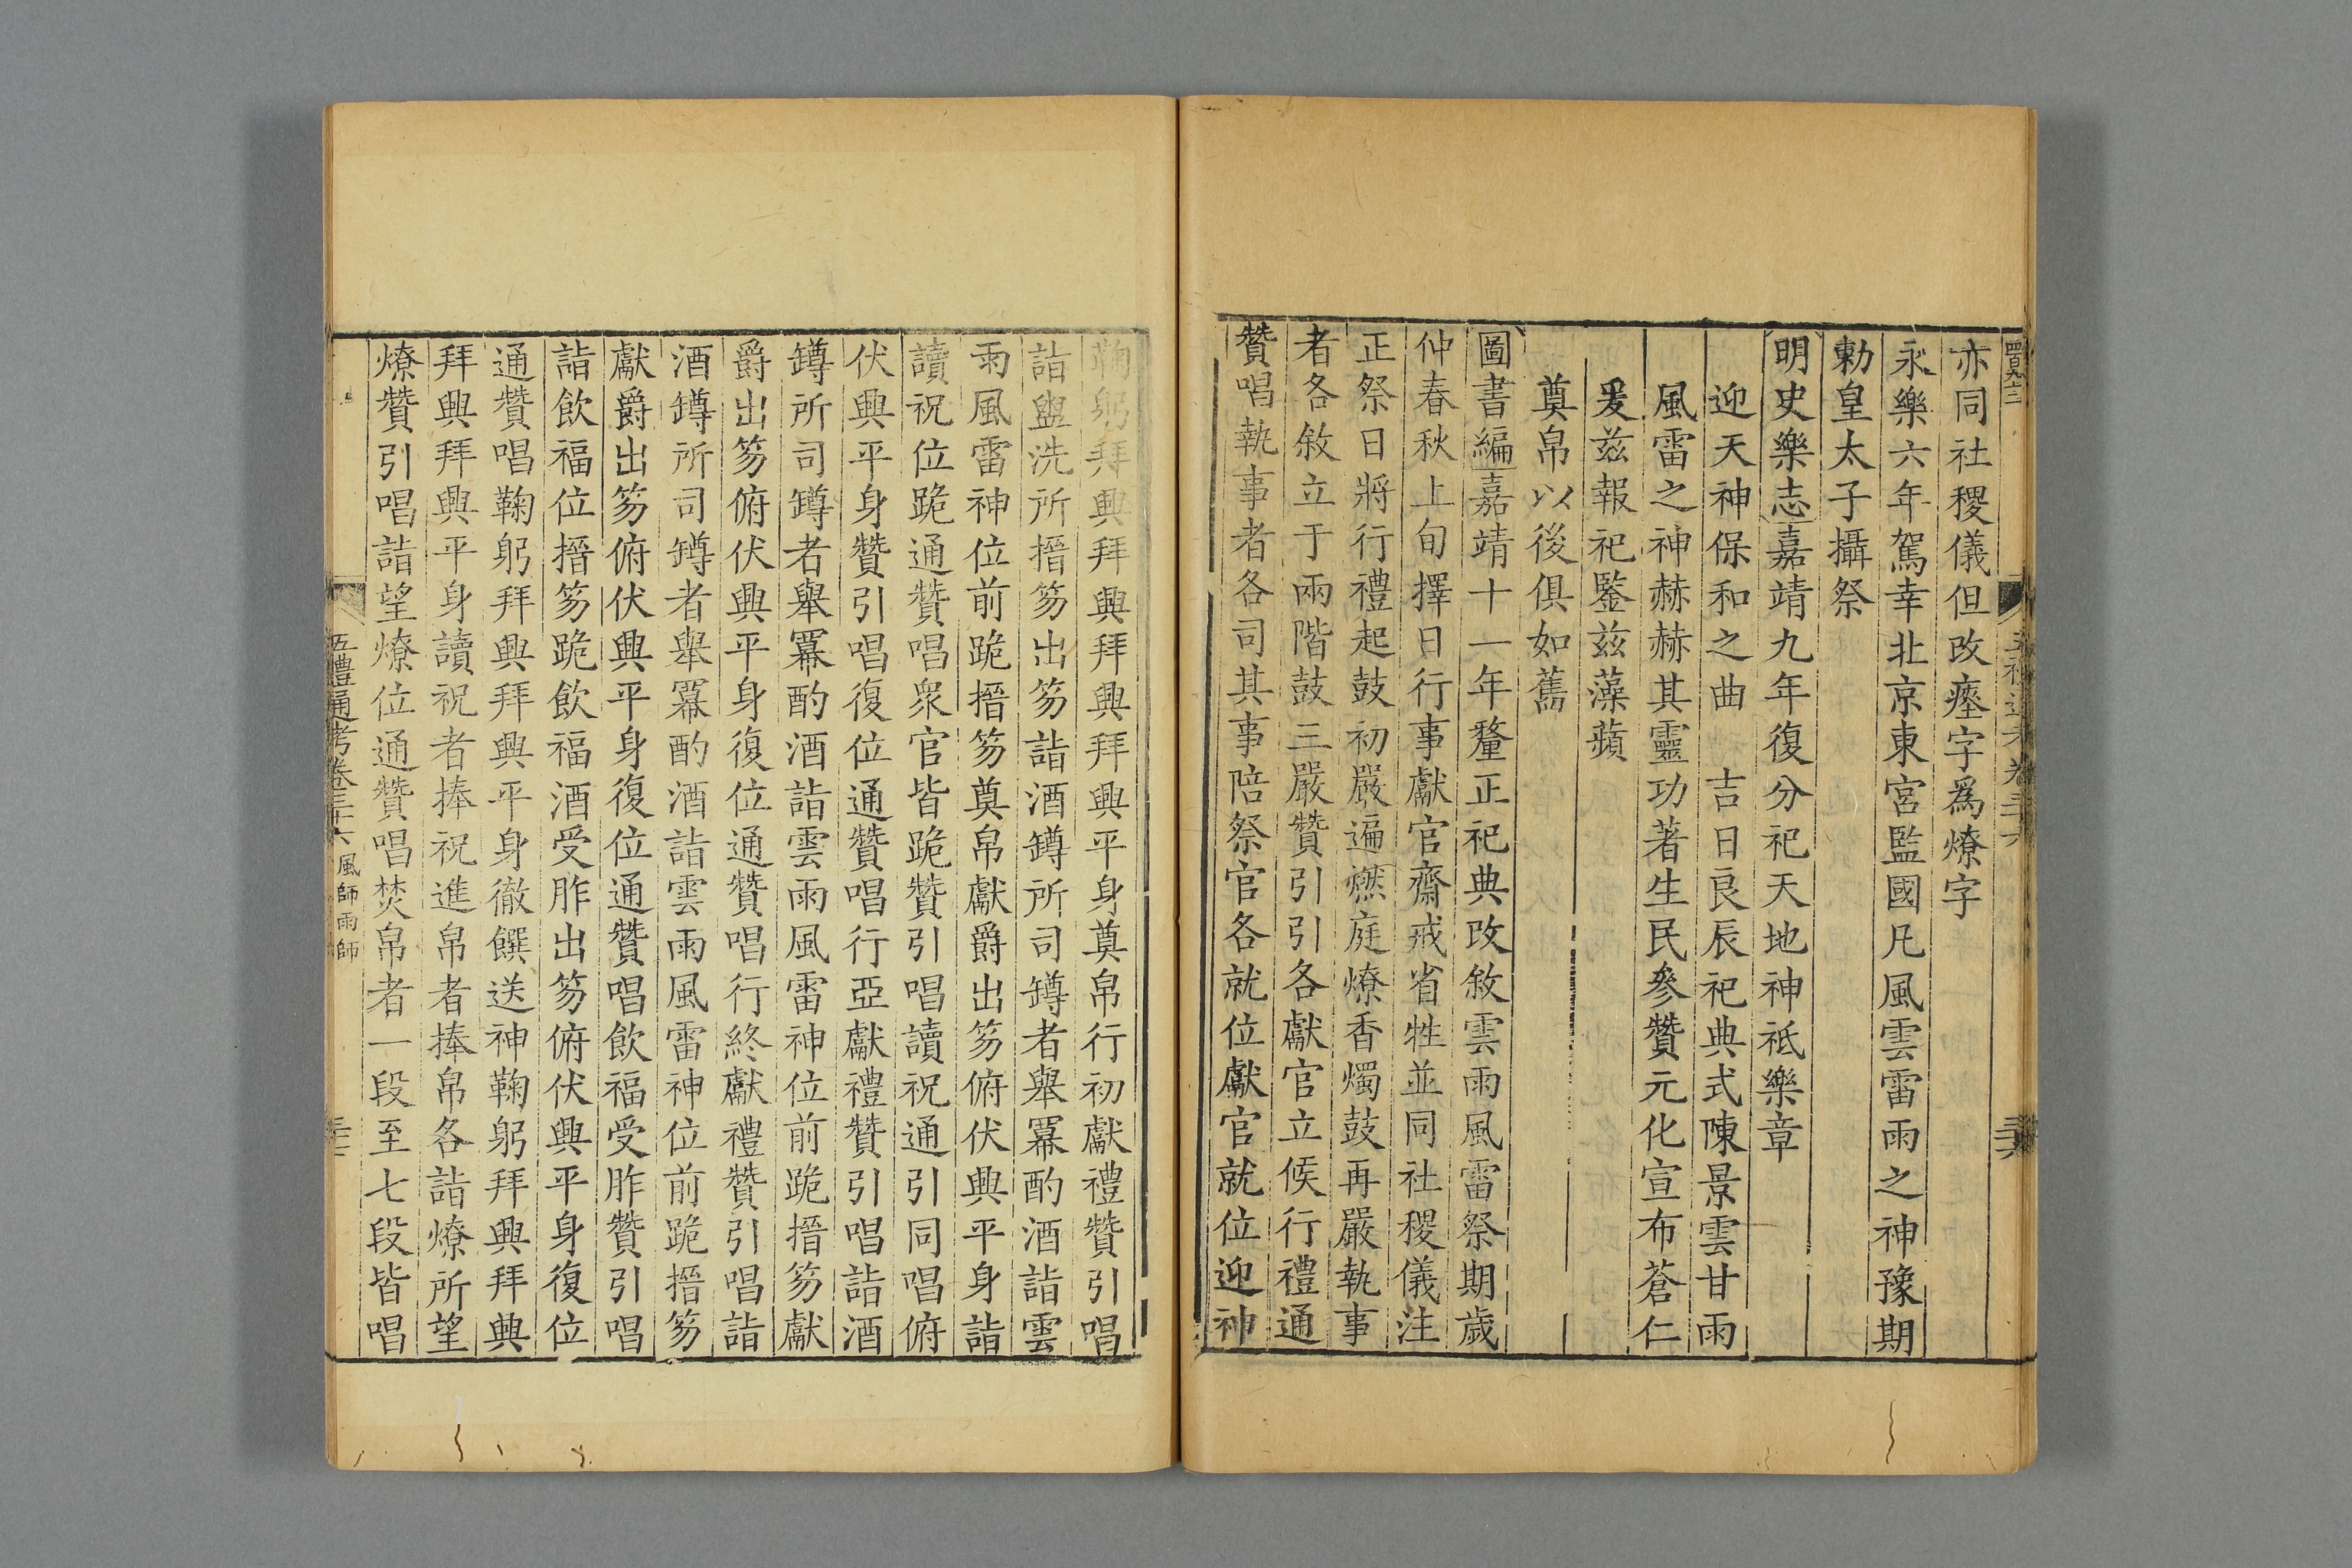 亦同社稷儀但改瘞字爲燎字
永樂六年駕幸北京東宮監國凡風雲雷雨之神豫期
勅皇太子攝祭
明史樂志嘉靖九年復分祀天地神祇樂章
迎天神保和之曲　吉日良辰祀典式陳景雲甘雨
風雷之神赫赫其靈功著生民參贊元化宣布蒼仁
爰兹報祀鑒兹藻蘋
奠帛以後俱如舊
圖書編嘉靖十一年釐正祀典改敘雲雨風雷祭期歲
仲春秋上旬擇日行事獻官齋戒省牲並同社稷儀注
正祭日將行禮起鼓初嚴遍燃庭燎香燭鼓再嚴執事
者各敘立于兩階鼓三嚴贊引引各獻官立候行禮通
贊唱執事者各司其事陪祭官各就位獻官就位迎神
鞠躬拜興拜興拜興拜興平身奠帛行初獻禮贊引唱
詣盥洗所搢笏出笏詣酒罇所司罇者舉冪酌酒詣雲
雨風雷神位前跪搢笏奠帛獻爵出笏俯伏興平身詣
讀祝位跪通贊唱衆官皆跪贊引唱讀祝通引同唱俯
伏興平身贊引唱復位通贊唱行亞獻禮贊引唱詣酒
罇所司罇者舉冪酌酒詣雲雨風雷神位前跪搢笏獻
爵出笏俯伏興平身復位通贊唱行終獻禮贊引唱詣
酒罇所司罇者舉冪酌酒詣雲雨風雷神位前跪搢笏
獻爵出笏俯伏興平身復位通贊唱飲福受胙贊引唱
詣飲福位搢笏跪飲福酒受胙出笏俯伏興平身復位
通贊唱鞠躬拜興拜興平身徹饌送神鞠躬拜興拜興
拜興拜興平身讀祝者捧祝進帛者捧帛各詣燎所望
燎贊引唱詣望燎位通贊唱焚帛者一段至七段皆唱
五禮通考卷三十六　風師雨師